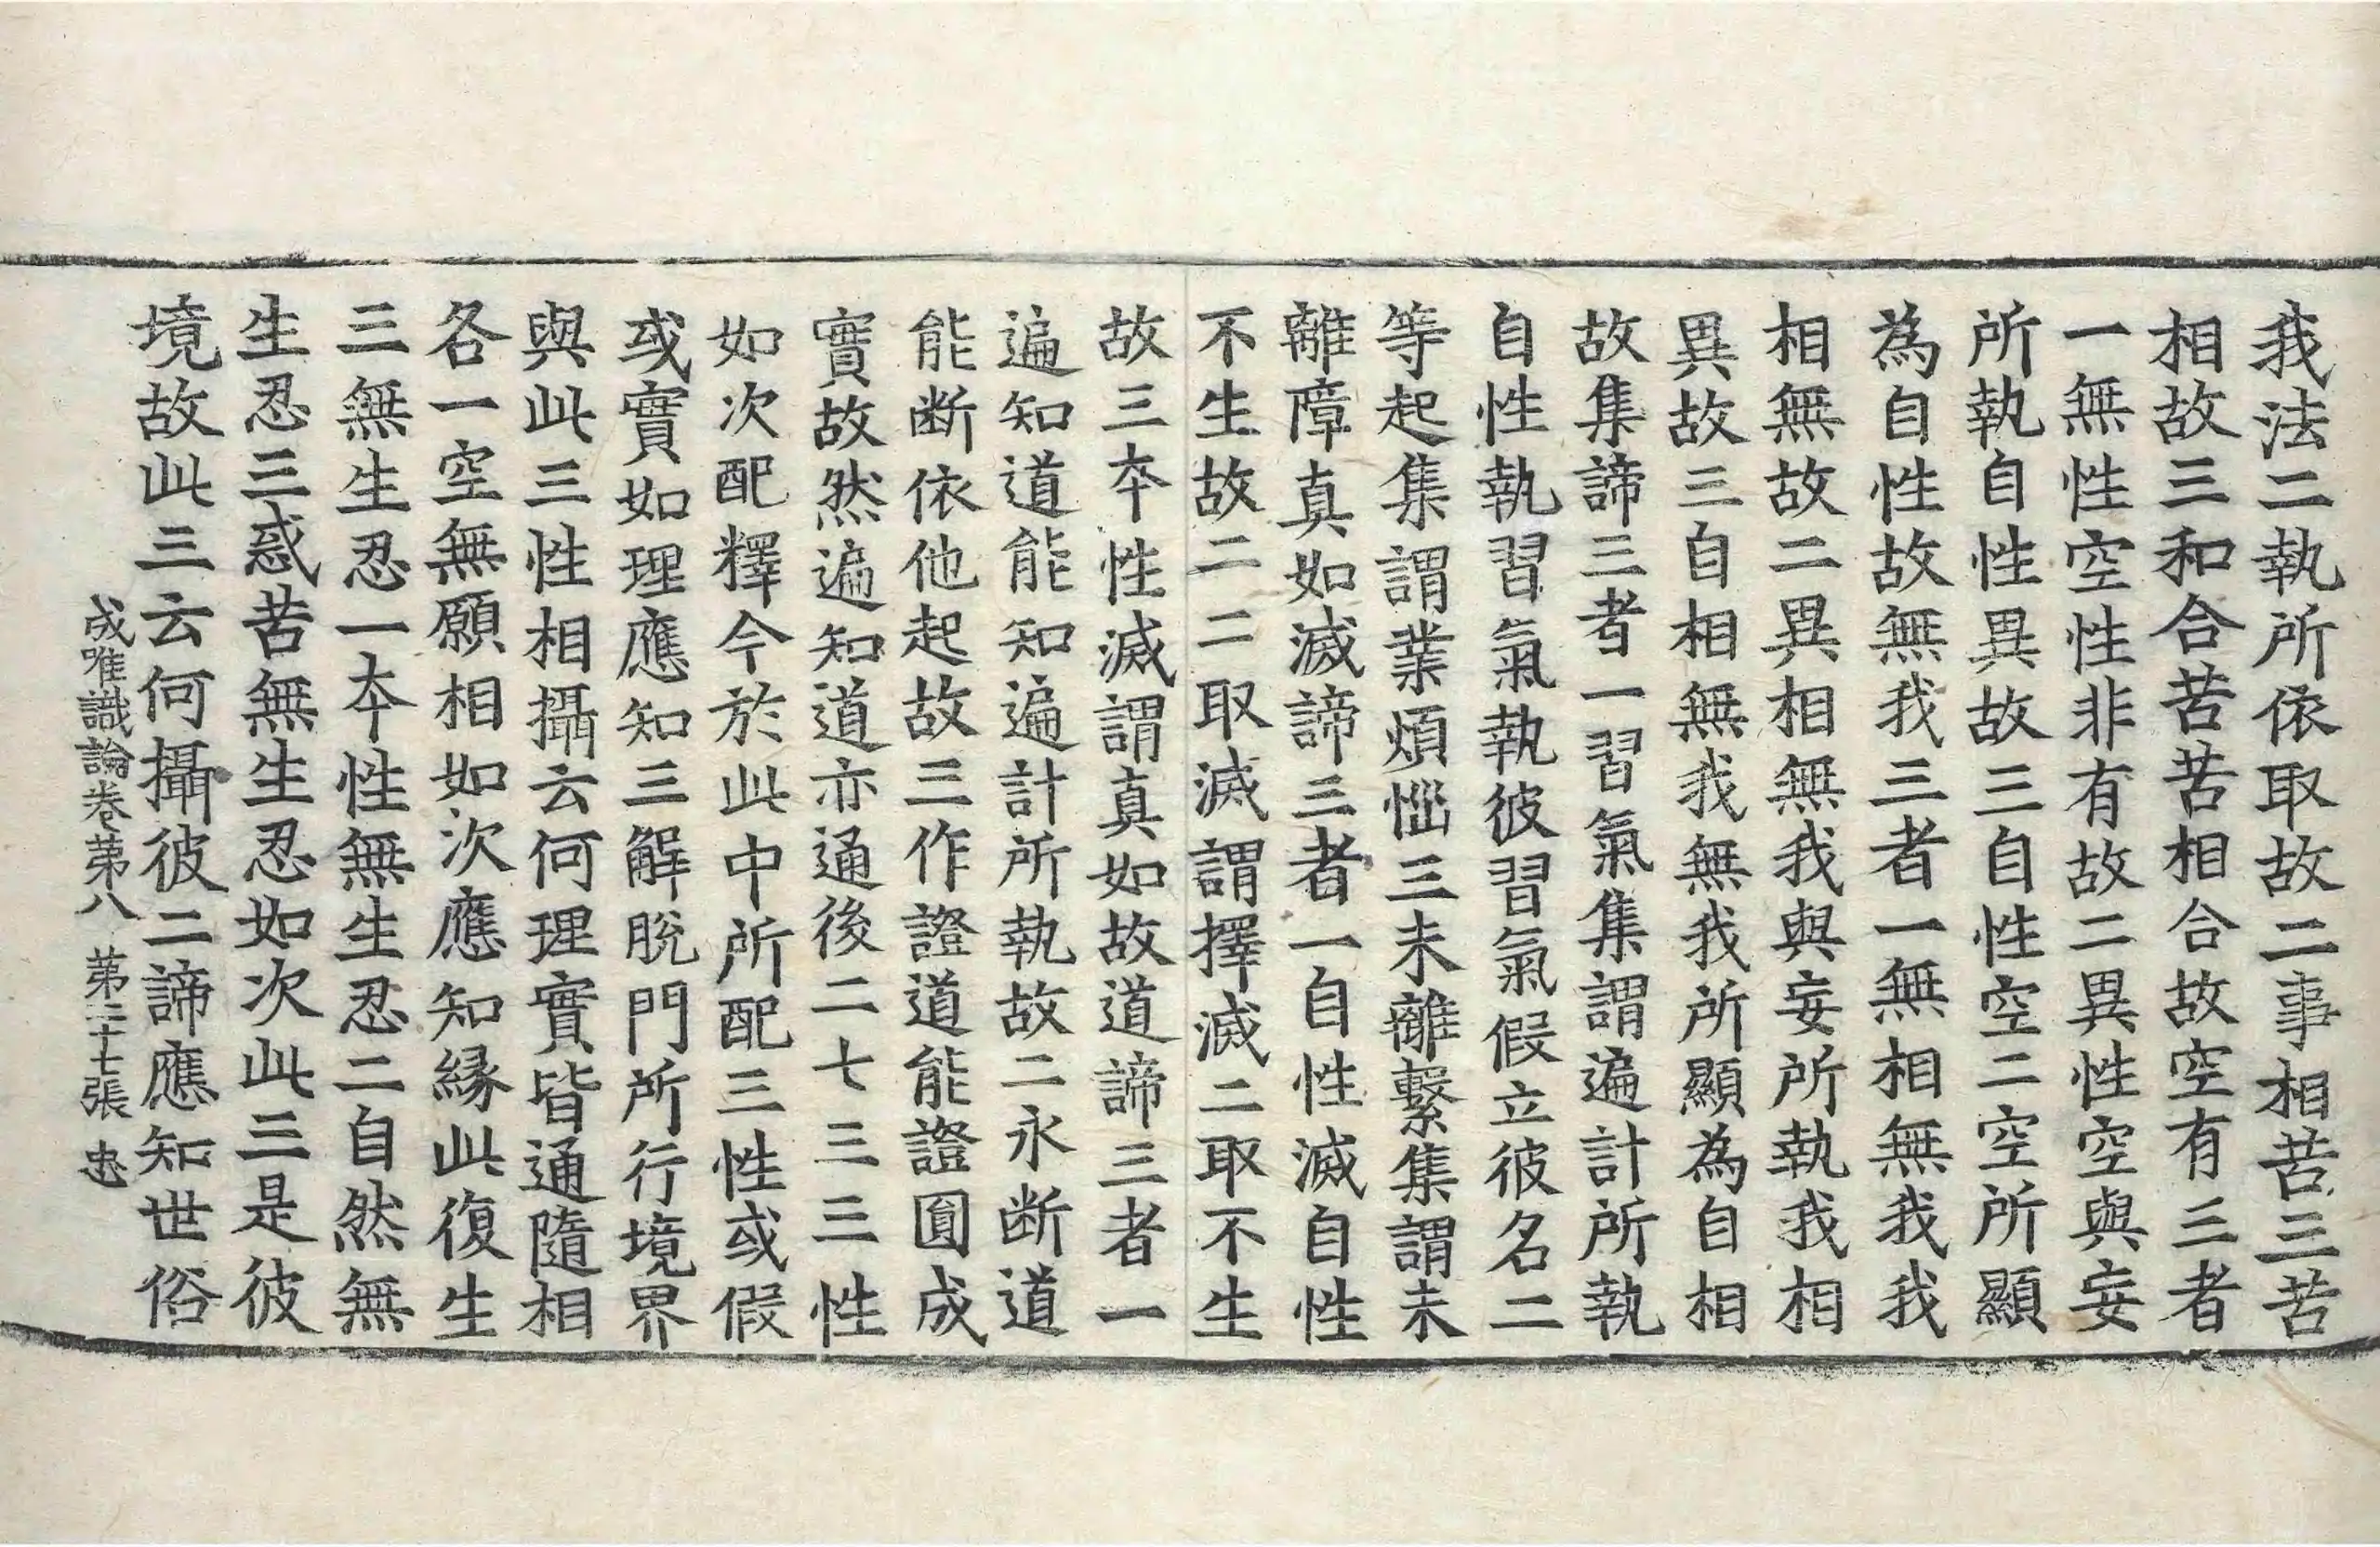 我法二執所依取故二事相苦三苦
相故三和合苦苦相合故空有三者
一無性空性非有故二異性空與妄
所執自性異故三自性空二空所顯
為自性故無我三者一無相無我我
相無故二異相無我與妄所執我相
異故三自相無我無我所顯為自相
故集諦三者一習氣集謂遍計所執
自性執習氣執彼習氣假立彼名二
等起集謂業煩惱三未離繫集謂未
離障真如滅諦三者一自性滅自性
不生故二二取滅謂擇滅二取不生
故三夲性滅謂真如故道諦三者一
遍知道能知遍計所執故二永断道
能断依他起故三作證道能證圓成
實故然遍知道亦通後二七三三性
如次配釋今於此中所配三性或假
或實如理應知三解脫門所行境界
與此三性相攝云何理實皆通隨相
各一空無願相如次應知緣此復生
三無生忍一夲性無生忍二自然無
生忍三惑苦無生忍如次此三是彼
境故此三云何攝彼二諦應知世俗
成唯識論卷第八 第三十七張 忠